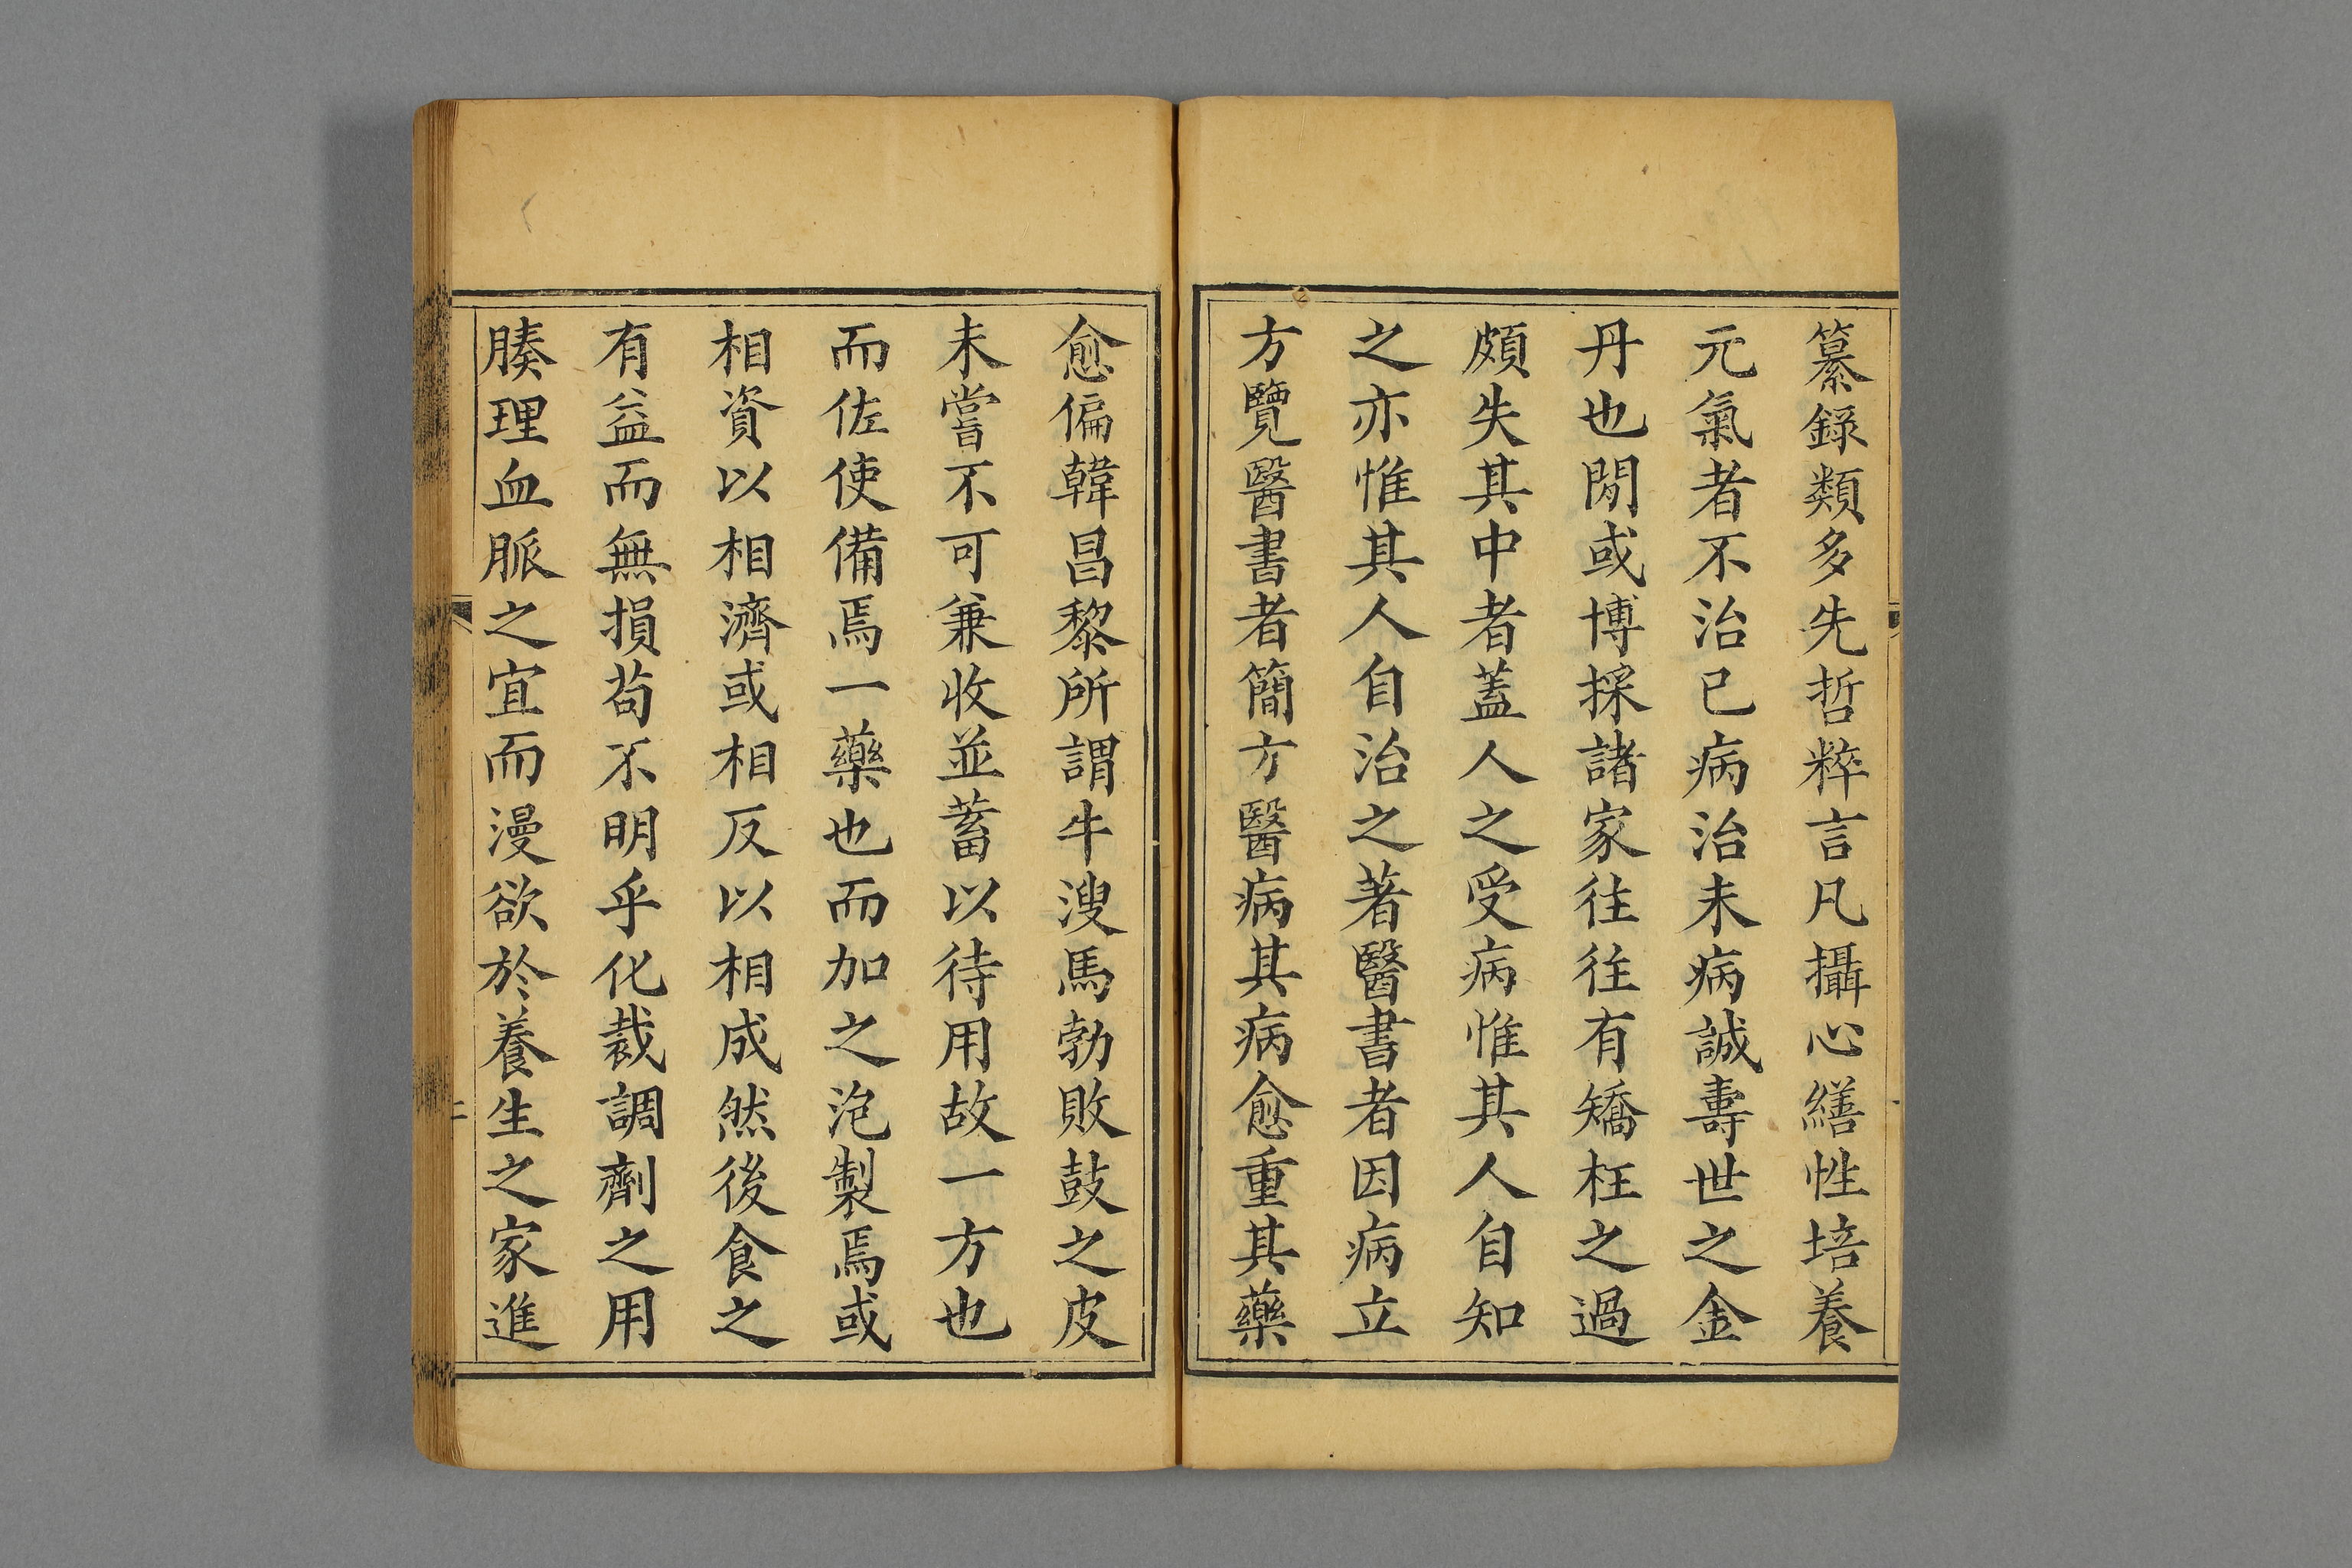 纂錄類多先哲粹言凡攝心繕性培養
元氣者不治已病治未病誠壽世之金
丹也閒或博採諸家往往有矯枉之過
頗失其中者蓋人之受病惟其人自知
之亦惟其人自治之著醫書者因病立
方覽醫書者簡方醫病其病愈重其藥
愈偏韓昌黎所謂牛溲馬勃敗鼓之皮
未嘗不可兼收並蓄以待用故一方也
而佐使備焉一藥也而加之泡製焉或
相資以相濟或相反以相成然後食之
有益而無損苟不明乎化裁調劑之用
腠理血脈之宜而漫欲於養生之家進